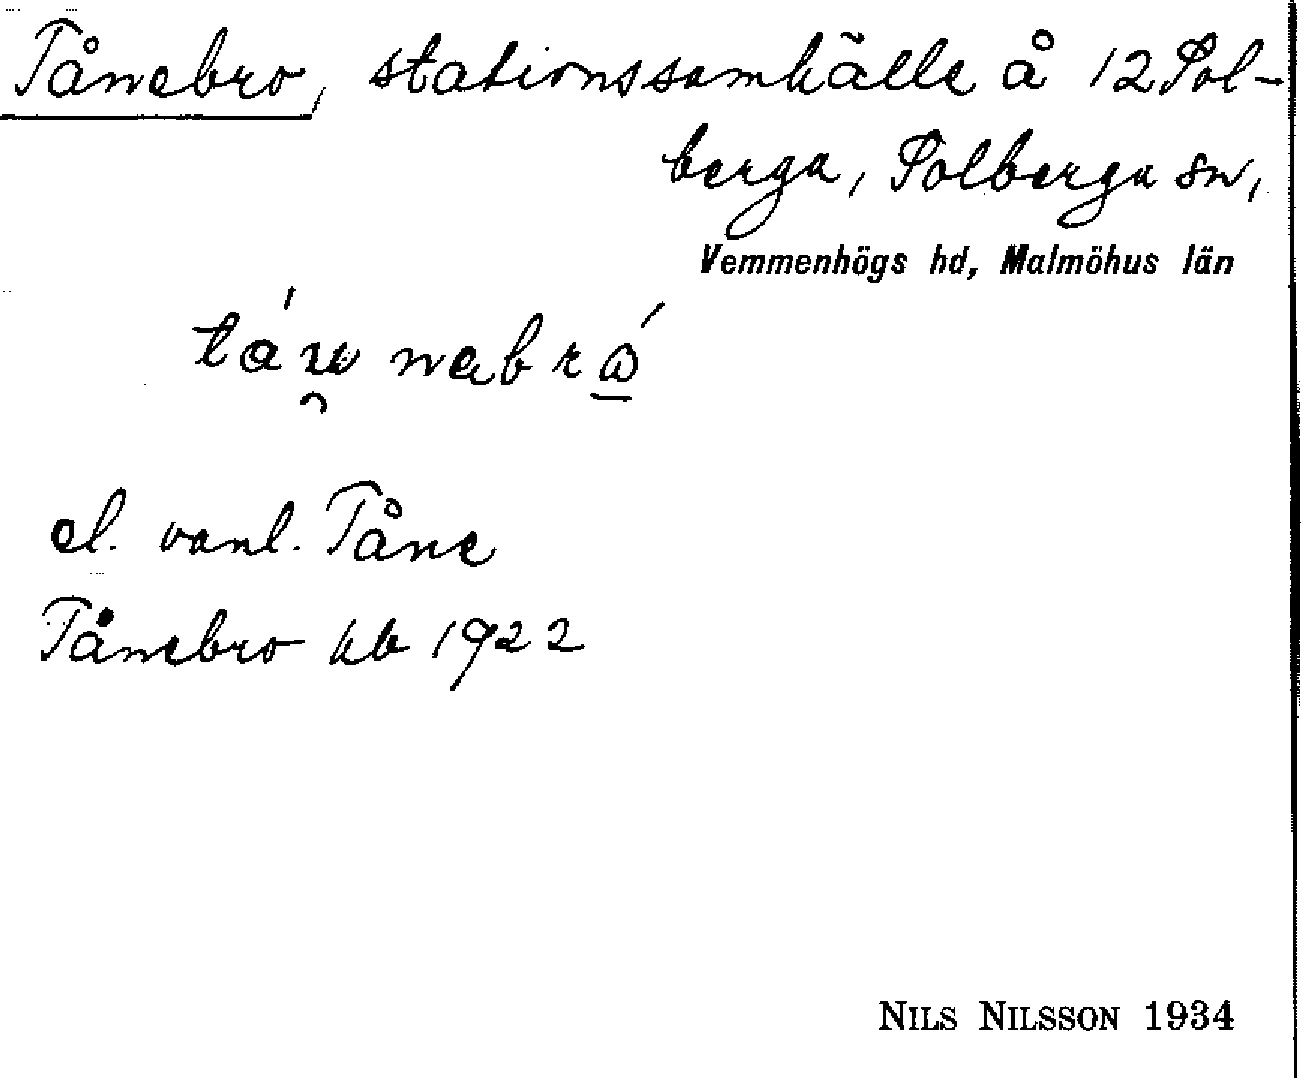 Tånebro, stationssamhälle å 12 Sol-
berga, Solberga sn,
Vemmenhögs hd, Malmöhus län
el. vanl. Tåne
Tånebro kb 1922
NILS NILSSON 1934